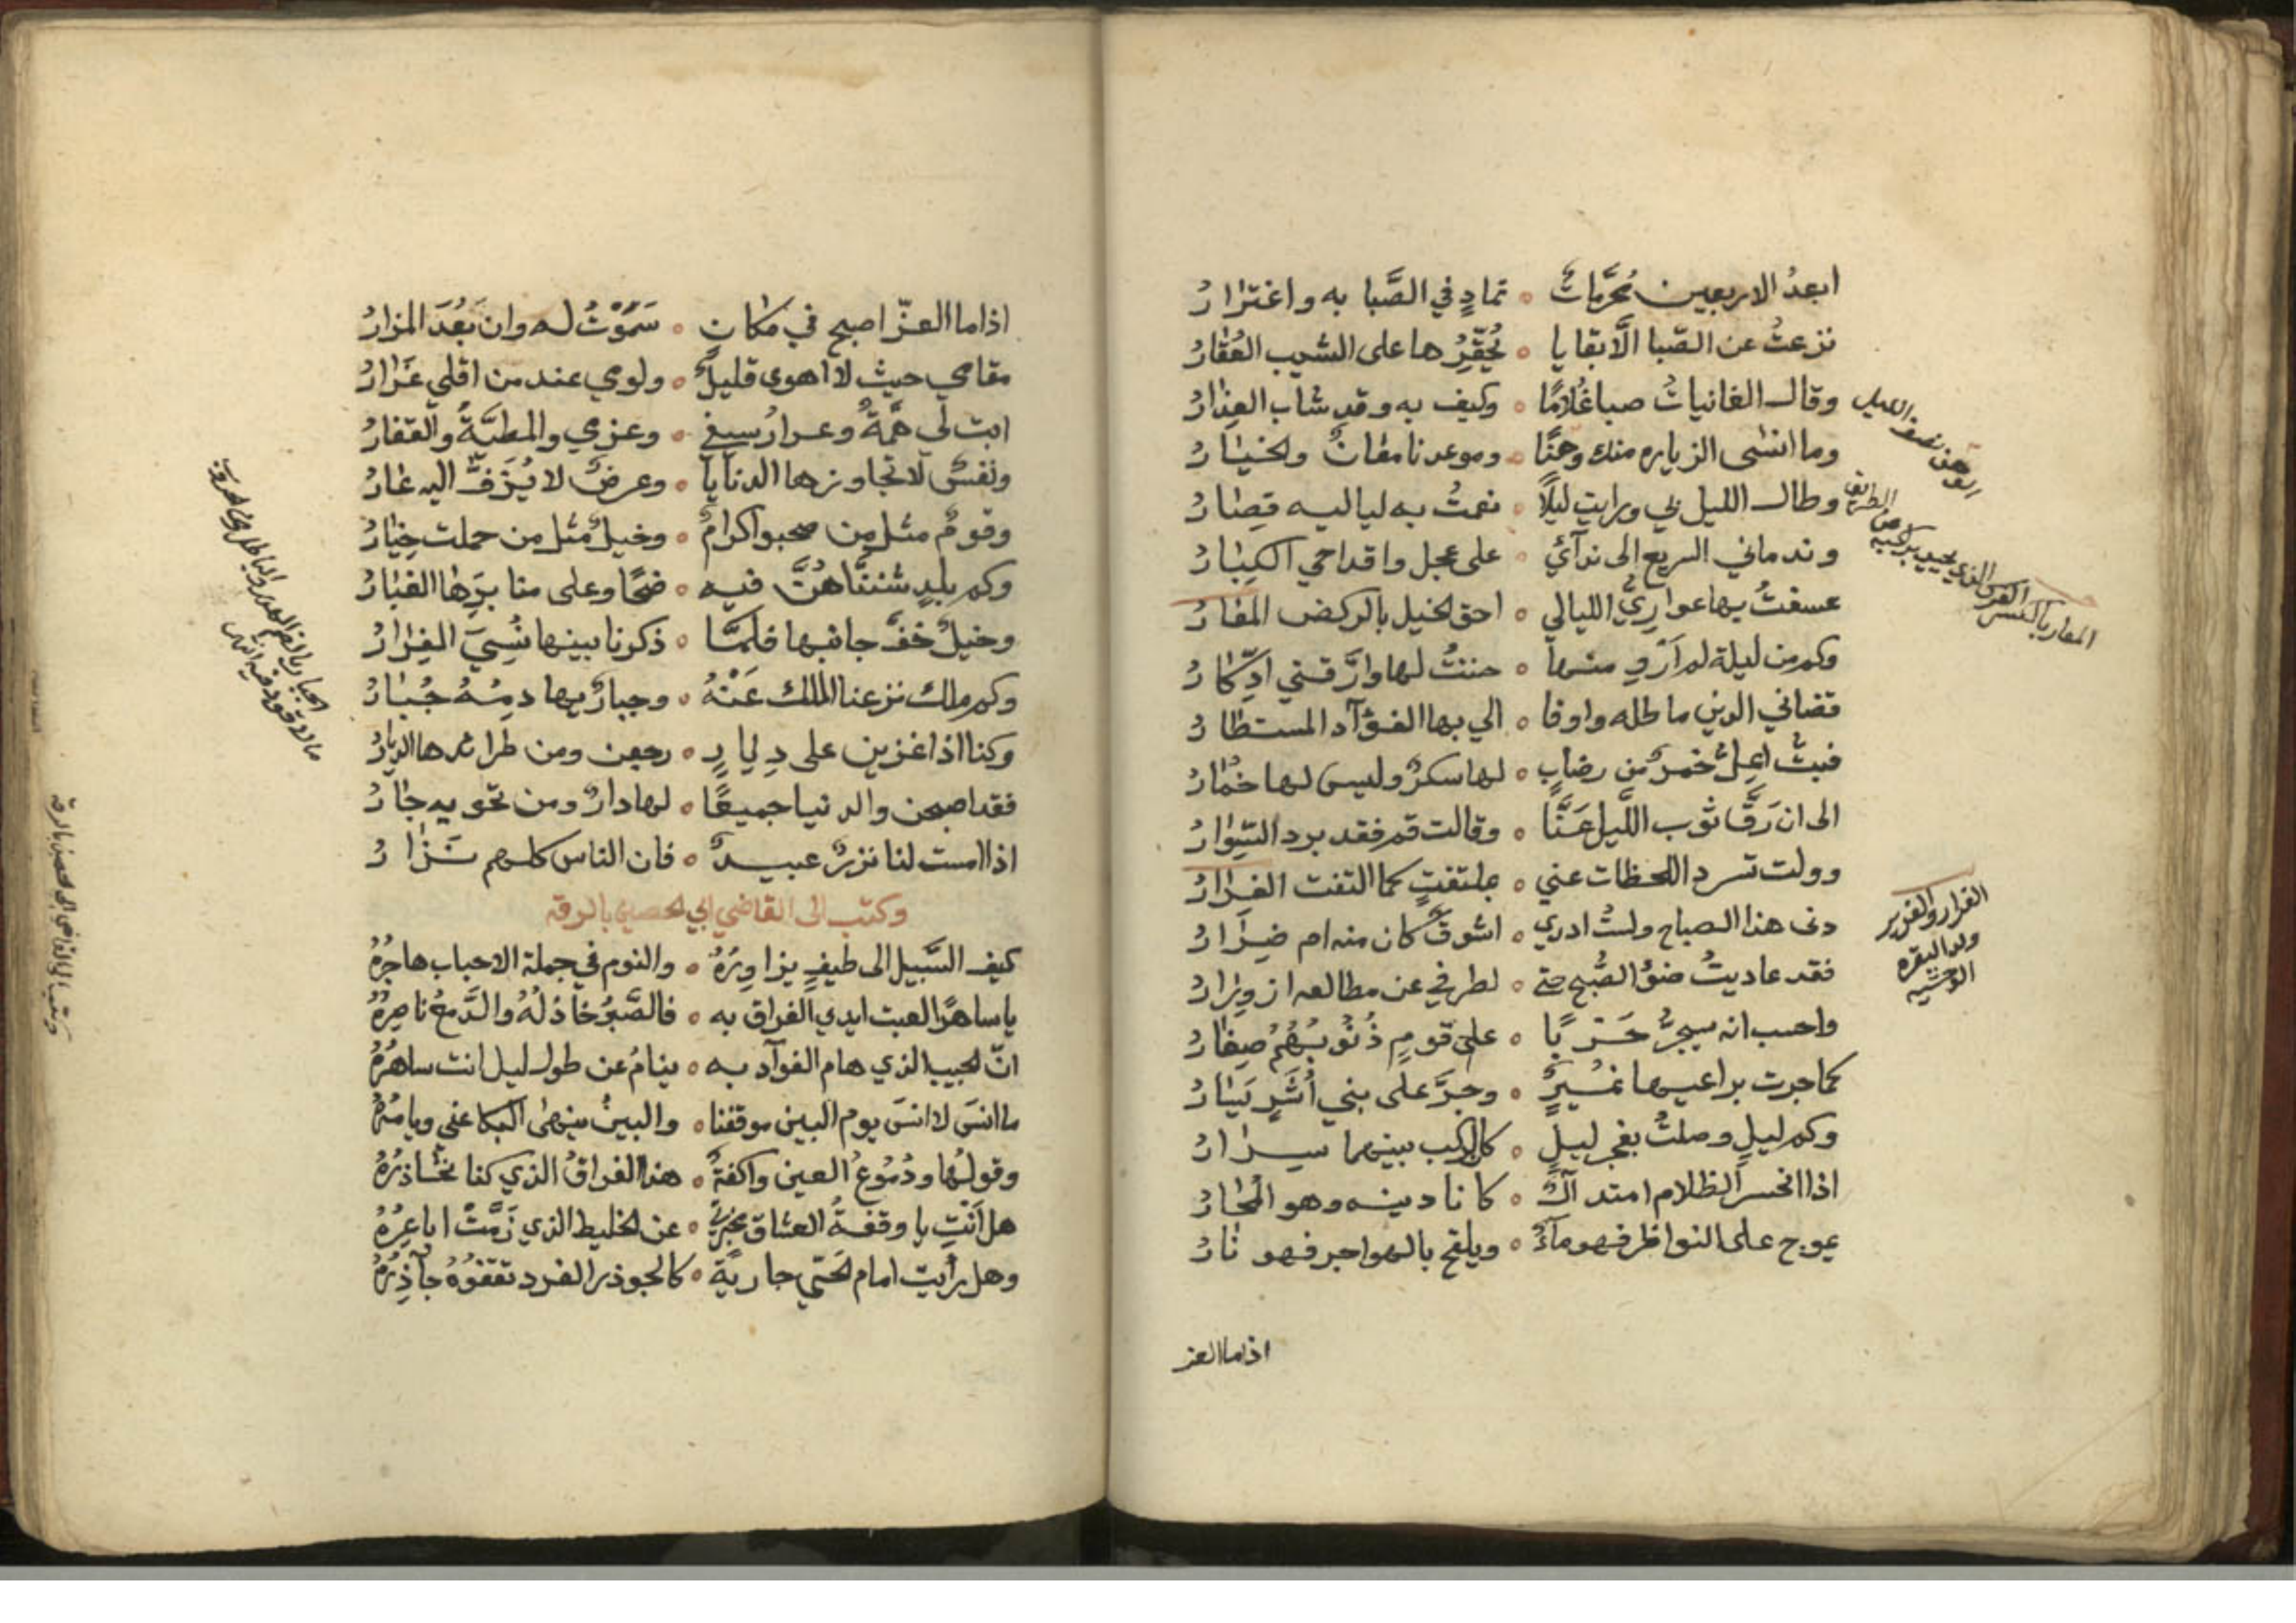 ابعدُ الاربعين مُحَرَّماتٌ ° تمادٍ في الصَّبا به واغترارُ
نزعتُ عن الصّبا الّا بقايا ° يُحَقِّرُها على الشيب العُقارُ
وقال الغانياتُ صبا غُلامًا ° وكيف به وقد شاب العِذارُ
وما انسَى الزياره منك وهنًا ° وموعدنا مغانٌ والخيارُ
وطال الليل بي ورايت ليلًا ° نعمتُ به لياليه قصارُ
وندماني السريع الى ندآئي ° على عجل واقداحي الكبارُ
عسفتُ بها عوارِيَّ الليالي ° احق الخيل بالركض المغارُ
وكم من ليلة لم اَرْوِ منها ° حننتُ لها وارَّقني ادّكارُ
قضاني الدين ماطله واوفا ° الي بها الفؤآد المستطارُ
فبتُّ اعِلُّ خمرًا من رضابٍ ° لها سكرٌ وليس لها خمارُ
الى ان رَقَّ ثوب اللَّيل عَنَّا ° وقالت قم فقد برد السِّوارُ
وولت تسرد اللحظات عني ° بملتفتٍ كما التفت الغرارُ
دنى هذا الصباح ولستُ ادري ° اشوقٌ كان منه ام ضِرَارُ
فقد عاديتُ ضوَ الصُّبح حتى ° لطرفي عن مطالعه ازورارُ
واحسب انه سيجرُّ حَرْبًا ° على قومٍ ذُنُوبُهُم صِغارُ
كما جرت براعيها نمُيرٌ ° وجرَّ على بني اَسَدٍ يَسَارُ
وكم ليلٍ وصلتُ بفجر ليلٍ ° كان الركب بينهما سرارُ
اذا انحسر الظلام امتد آلٌ ° كانا دينه وهو البحارُ
يموج على النواظر فهو مآءٌ ° ويلفح بالهواجر فهو نارُ
الوهن نصف الليل
المغار بالكسر الفرس الذي يحيد براكبه عن الطريق
الفرار والفرير
ولد البقره
الوحشيه
اذا ما العز
اذا ما العزّ اصبح في مكان ° سَمَوْتُ له وان بَعُدَ المزارُ
مقامي حيث لا اهوى قليلٌ ° ولومي عند من اقلي غَرارُ
ابت لي همَّةٌ وعرارُ سيفي ° وعزمي والمطيَّةُ والقفارُ
ونفسٌ لا تجاورها الدنايا ° وعرضٌ لا يَرِفُّ اليه عارُ
وقومٌ مثل من صحبوا كرامٌ ° وخيلٌ مثل من حملت خِيَارُ
وكم بلدٍ شننَّاهُنَّ فيه ° ضحًا وعلى منابَرِها الغبارُ
وخيلٌ خفَّ جانبها فلمّا ° ذكرنا بينها نُسِيَ الفِرَارُ
وكم ملك نزعنا الملك عَنْهُ ° وجبارٌ بها دمُهُ جُبَارُ
وكنا اذا غزين على دِيارٍ ° رجعن ومن طرائدها الديارُ
فقد اصبحن والدنيا جميعًا ° لها دارٌ ومن تحويه جَارُ
اذا امست لنا نزرٌ عبيدٌ ° فان الناس كلهم نَزارُ
وكتب الى القاضي ابي الحصين بالرقه
كيف السَّبيل الى طيفٍ يزاوِرُهُ ° والنوم في جملة الاحباب هاجرُهُ
يا ساهرًا لعبت ايدي الفراق به ° فالصَّبرُ خاذلُهُ والدَّمعُ ناصِرُهُ
انّ الحبيب الذي هام الفوآد به ° ينامُ عن طول ليل انت ساهرُهُ
ما انسَ لا انسَ يوم البين موقفنا ° والبينُ ينهى البكا عني ويامُرُهُ
وقولُها ودُمُوعُ العين واكفةٌ ° هذا الفراقُ الذي كنا نحُاذرُهُ
هل اَنْتِ يا وقفةُ العشاق مخبرتي ° عن الخليط الذي زَمَّتْ اباعِرُهُ
وهل رأيت امام الحَيّ جاريةً ° كالجوذر الفرد تقفوُهُ جآذِرُهُ
الجبار بالضم الهدر والباطل
مالا قود فيه